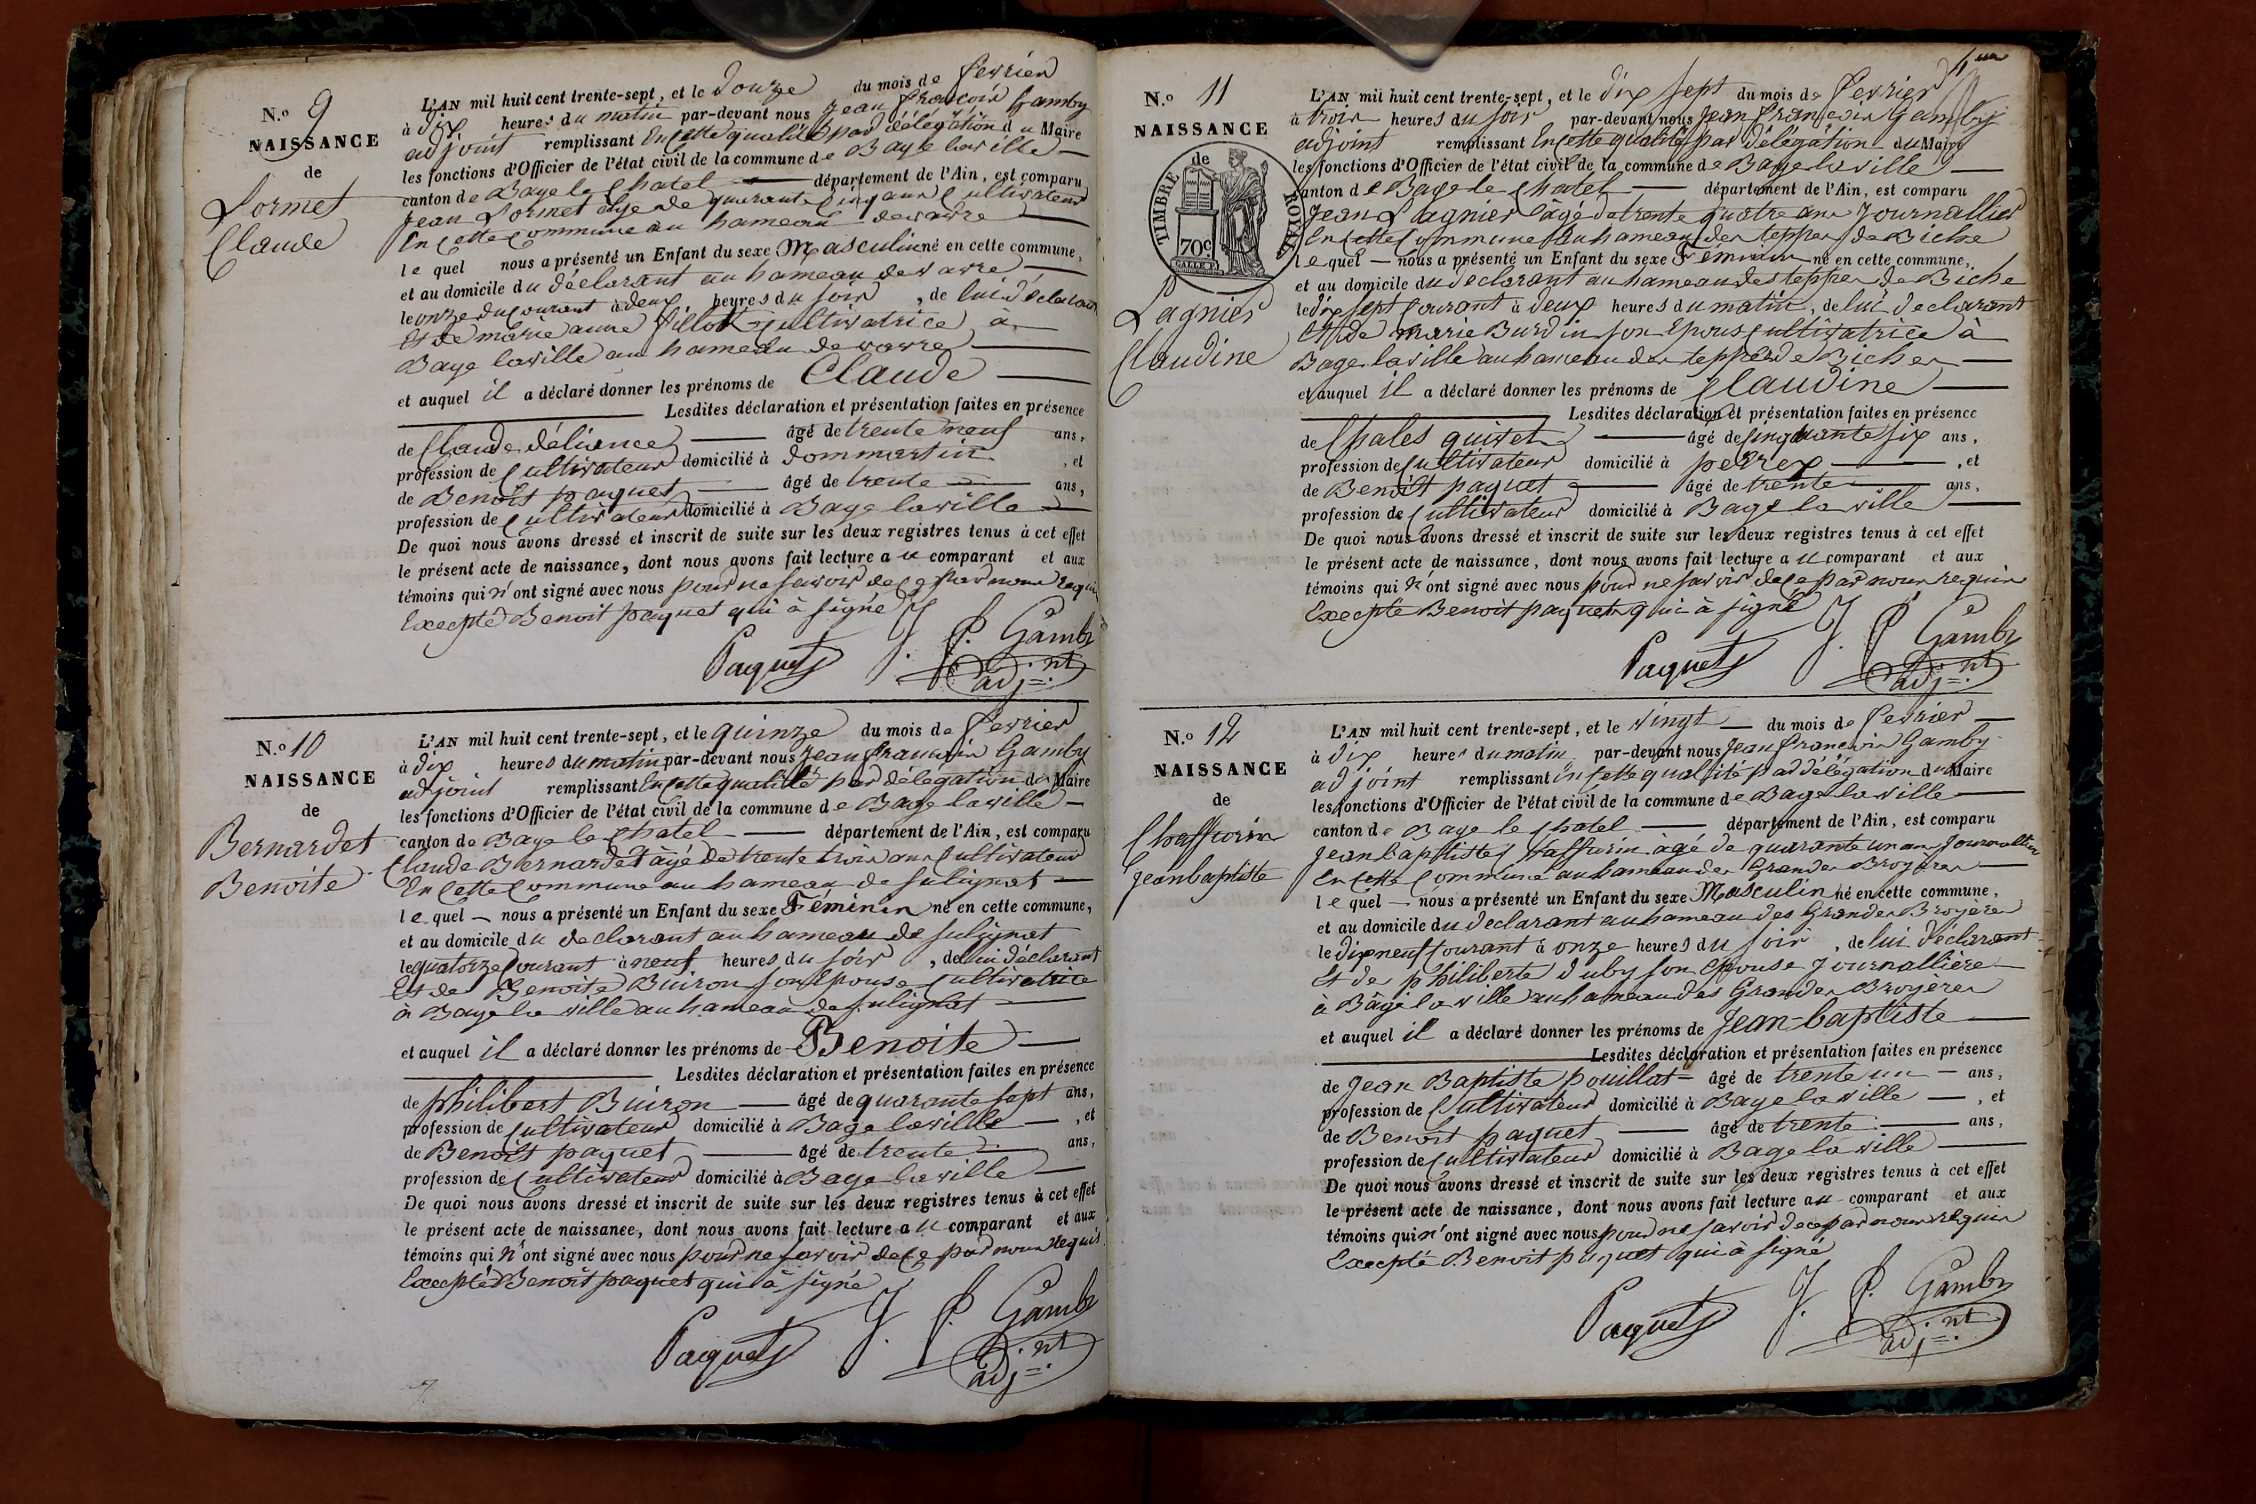 N.o 9
NAISSANCE
de
Lormet
Claude
L'AN mil huit cent trente-sept, et le Douze du mois de fevrier
à dix heures du matin par-devant nous Jean françois Gamby
adjoint remplissant En cette qualité par délégation du Maire
les fonctions d'Officier de l'état civil de la commune de Bage laville
canton de Bage le Chatel département de l'Ain, est comparu
Jean Lormet âge de quarante cinq ans Cultivateur
En Cette Commune au hameau de vavre
le quel nous a présenté un Enfant du sexe Masculin né en cette commune,
et au domicile du déclarant au hameau de vavre
le onze du courant à deux heures du soir, de lui déclarant
Et de marie anne fillot cultivatrice à
Bage laville au hameau de vavre
et auquel il a déclaré donner les prénoms de Claude
Lesdites déclaration et présentation faites en présence
de Claude déliance âgé de trente neuf ans,
profession de Cultivateur domicilié à dommartin, et
de Benoit paquet âgé de trente ans,
profession de Cultivateur domicilié à Bage laville
De quoi nous avons dressé et inscrit de suite sur les deux registres tenus à cet effet
le présent acte de naissance, dont nous avons fait lecture au comparant et aux
témoins qui n'ont signé avec nous pour ne savoir de ce par nous requis
Excepté Benoit paquet qui à signé
Paquet J. f. Gamby
adj.nt
N.o 10
NAISSANCE
de
Bernardet
Benoite
L'AN mil huit cent trente-sept, et le quinze du mois de fevrier
à dix heures du matin par-devant nous Jean françois Gamby
adjoint remplissant En cette qualité par délégation du Maire
les fonctions d'Officier de l'état civil de la commune de Bage laville
canton de Bage le Chatel département de l'Ain, est comparu
Claude Bernardet âgé de trente trois ans Cultivateur
En Cette Commune au hameau de Sulignat
le quel nous a présenté un Enfant du sexe Féminin né en cette commune,
et au domicile du declarant au hameau de Sulignat
le quatorze Courant à neuf heures du soir, de lui déclarant
Et de Benoite Buiron son Epouse Cultivatrice
a Bage la ville au hameau de Sulignat
et auquel il a déclaré donner les prénoms de Benoite
Lesdites déclaration et présentation faites en présence
de philibert Buiron âgé de quarante sept ans,
profession de Cultivateur domicilié à Bage laville, et
de Benoit paquet âgé de trente ans,
profession de Cultivateur domicilié à Bage la ville
De quoi nous avons dressé et inscrit de suite sur les deux registres tenus à cet effet
le présent acte de naissance, dont nous avons fait lecture au comparant et aux
témoins qui n'ont signé avec nous pour ne savoir de ce par nous requis
Excepté Benoit paquet qui à signé
Paquet J. f. Gamby
adj.nt
N.o 11
NAISSANCE
de
TIMBRE ROYAL
70c
Lagnier
Claudine
L'AN mil huit cent trente-sept, et le dix sept du mois de fevrier
à trois heures du soir par-devant nous Jean françois Gamby
adjoint remplissant En cette qualité par délégation du Maire
les fonctions d'Officier de l'état civil de la commune de Bage laville
canton de Bage le Chatel département de l'Ain, est comparu
Jean Lagnier âgé de trente quatre ans Journallier
En Cette Commune au hameau des teppes de Biche
le quel nous a présenté un Enfant du sexe Féminin né en cette commune,
et au domicile du declarant au hameau des teppes de Biche
le dix sept Courant à deux heures du matin, de lui declarant
Et de marie Burdin son Epouse Cultivatrice à
Bage laville au hameau des teppes de Biches
et auquel il a déclaré donner les prénoms de Claudine
Lesdites déclaration et présentation faites en présence
de Chales guivet âgé de Cinquante six ans,
profession de Cultivateur domicilié à perrex, et
de Benoit paquet âgé de trente ans,
profession de Cultivateur domicilié à Bage la ville
De quoi nous avons dressé et inscrit de suite sur les deux registres tenus à cet effet
le présent acte de naissance, dont nous avons fait lecture au comparant et aux
témoins qui n'ont signé avec nous pour ne savoir de ce par nous requis
Excepte Benoit paquet qui à signé
Paquet J. f. Gamby
adj.nt
N.o 12
NAISSANCE
de
Chaffurin
Jean baptiste
L'AN mil huit cent trente-sept, et le vingt du mois de fevrier
à dix heures du matin par-devant nous Jean françois Gamby
adjoint remplissant En cette qualité par délégation du Maire
les fonctions d'Officier de l'état civil de la commune de Bage la ville
canton de Bage le Chatel département de l'Ain, est comparu
Jean baptiste Chaffurin âgé de quarante un ans Journallier
En cette Commune au hameau des Grandes Broyères
le quel nous a présenté un Enfant du sexe Masculin né en cette commune,
et au domicile du declarant au hameau des Grandes Broyères
le dix neuf Courant à onze heures du soir, de lui déclarant
Et de philiberte duby son Epouse Journallière
à Bâgé la ville au hameau des Grandes Broyères
et auquel il a déclaré donner les prénoms de Jean-baptiste
Lesdites déclaration et présentation faites en présence
de Jean Baptiste pouillat âgé de trente un ans,
profession de Cultivateur domicilié à Bage la ville, et
de Benoit paquet âgé de trente ans,
profession de Cultivateur domicilié à Bage la ville
De quoi nous avons dressé et inscrit de suite sur les deux registres tenus à cet effet
le présent acte de naissance, dont nous avons fait lecture au comparant et aux
témoins qui n'ont signé avec nous pour ne savoir de ce par nous requis
Excepté Benoit paquet qui à signé
Paquet J. f. Gamby
adj.nt